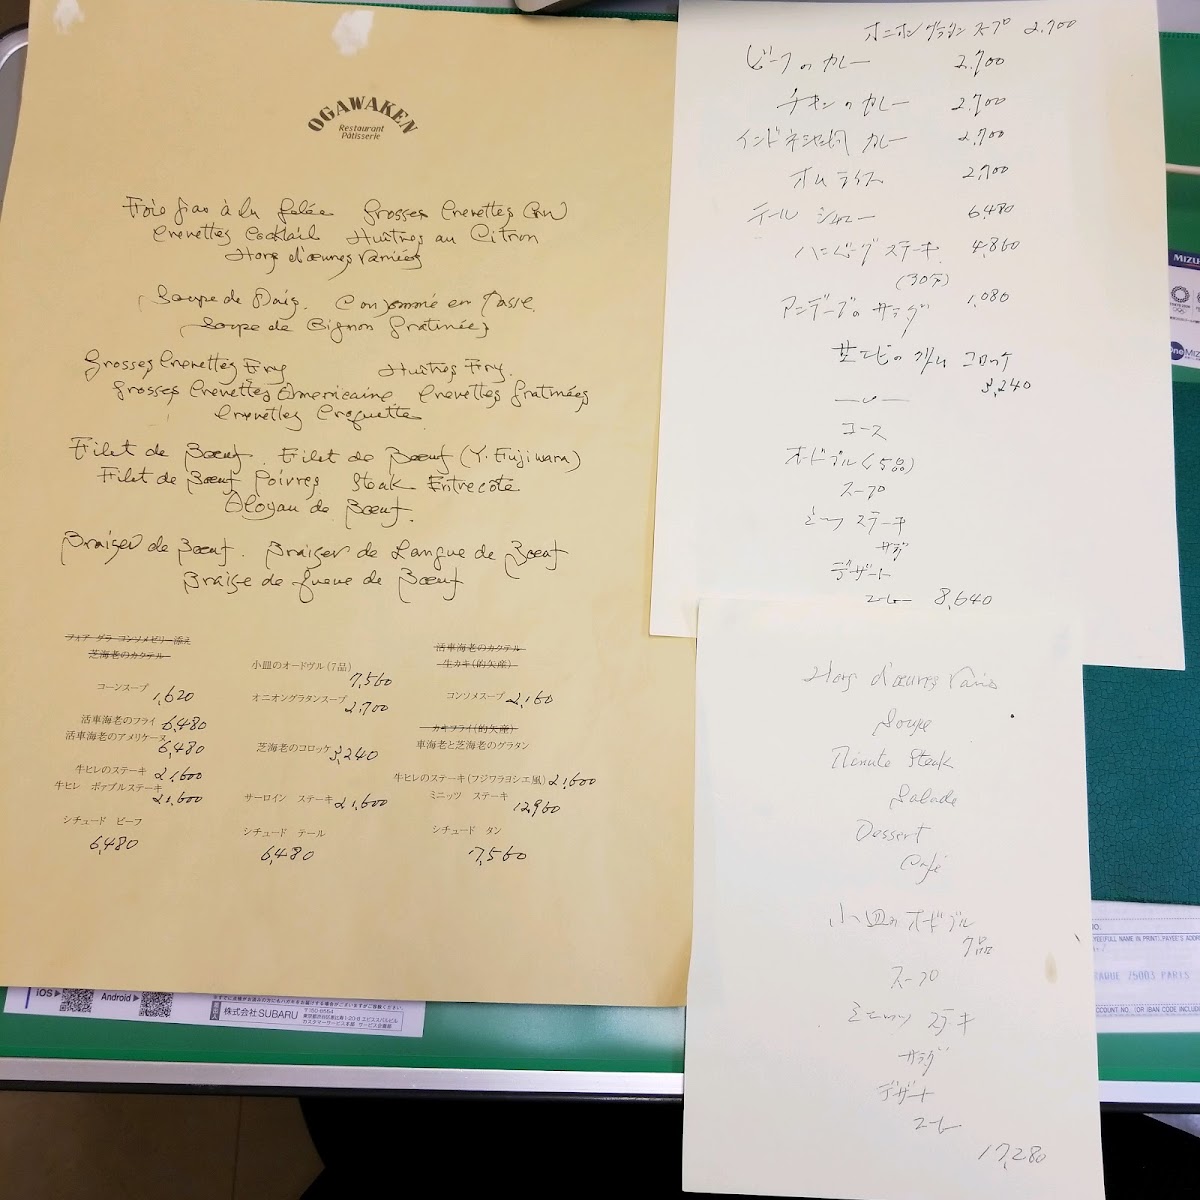 OGAWAKEN
Restaurant
Pâtisserie
Foie gras à la Gelée Grosses Crevettes Cru
Crevettes Cocktail Huîtres au Citron
Hors d'œuvres Variées
Soupe de Maïs. Consommé en Tasse.
Soupe de Oignon Gratinées
Grosses Crevettes Fry Huîtres Fry.
Grosses Crevettes Américaine Crevettes Gratinées
Crevettes Croquette
Filet de Bœuf. Filet de Bœuf (Y. Fujiwara)
Filet de Bœuf Poivres Steak Entrecôte
Aloyau de Bœuf.
Braiser de Bœuf. Braiser de Langue de Bœuf
Braise de Queue de Bœuf
フォア グラ コンソメゼリー添え
芝海老のカクテル
小皿のオードヴル(7品)
7,560
活車海老のカクテル
生カキ(的矢産)
コーンスープ 1,620
オニオングラタンスープ 2,700
コンソメスープ 2,160
活車海老のフライ 6,480
活車海老のアメリケーヌ 6,480
芝海老のコロッケ 3,240
カキフライ(的矢産)
車海老と芝海老のグラタン
牛ヒレのステーキ 21,600
牛ヒレ ポァブルステーキ 21,600
サーロイン ステーキ 21,600
牛ヒレのステーキ(フジワラヨシエ風) 21,600
ミニッツ ステーキ 12,960
シチュード ビーフ
6,480
シチュード テール
6,480
シチュード タン
7,560
オニオングラタンスープ 2,700
ビーフのカレー 2,700
チキンのカレー 2,700
カレー 2,700
オムライス 2,700
テール シチュー 6,480
ハンバーグステーキ 4,860
(30分)
アンデーブのサラダ 1,080
芝エビのクリームコロッケ
3,240
コース
オードブル(5品)
スープ
ミニッツステーキ
サラダ
デザート
コーヒー 8,640
Hors d'œuvres Variés
Soupe
Minute Steak
Salade
Dessert
Café
小皿のオードブル
7品
スープ
ミニッツステーキ
サラダ
デザート
コーヒー
17,280
iOS Android
株式会社SUBARU
〒150-8554
東京都渋谷区恵比寿1-20-8 エビススバルビル
カスタマーサービス本部 サービス企画部
MIZUHO
CCOUNT NO. (OR IBAN CODE